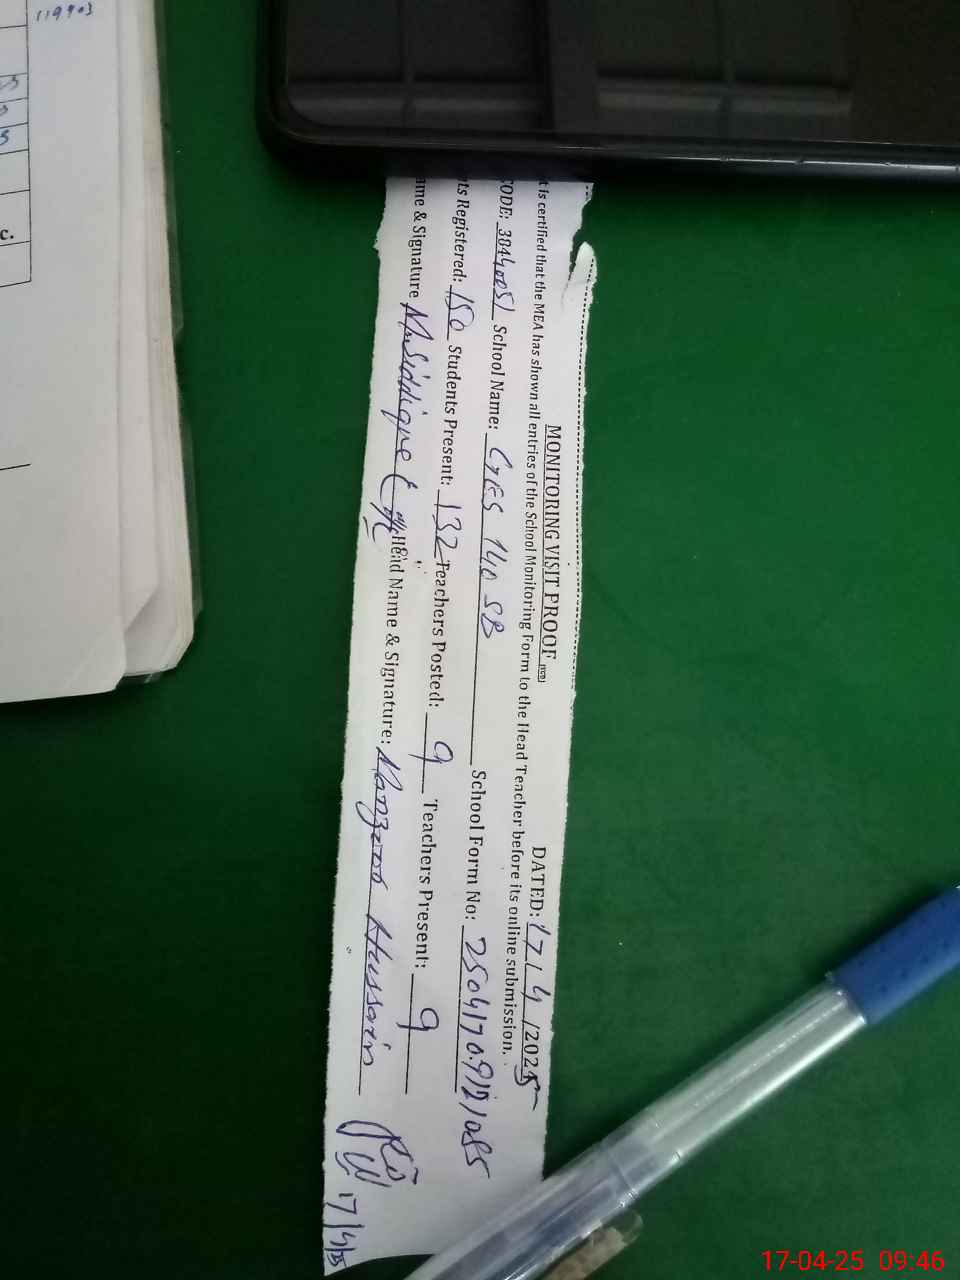 MONITORING VISIT PROOF DATED: 17/4/2025
t is certified that the MEA has shown all entries of the School Monitoring Form to the Head Teacher before its online submission.
CODE: 38440051 School Name: GES 140 SB School Form No:
nts Registered: 150 Students Present: 132 Teachers Posted: 9 Teachers Present: 9
ame & Signature M.Siddique Head Name & Signature: Manzoor Hussain
17/4/25
119903
c.
17-04-25 09:46